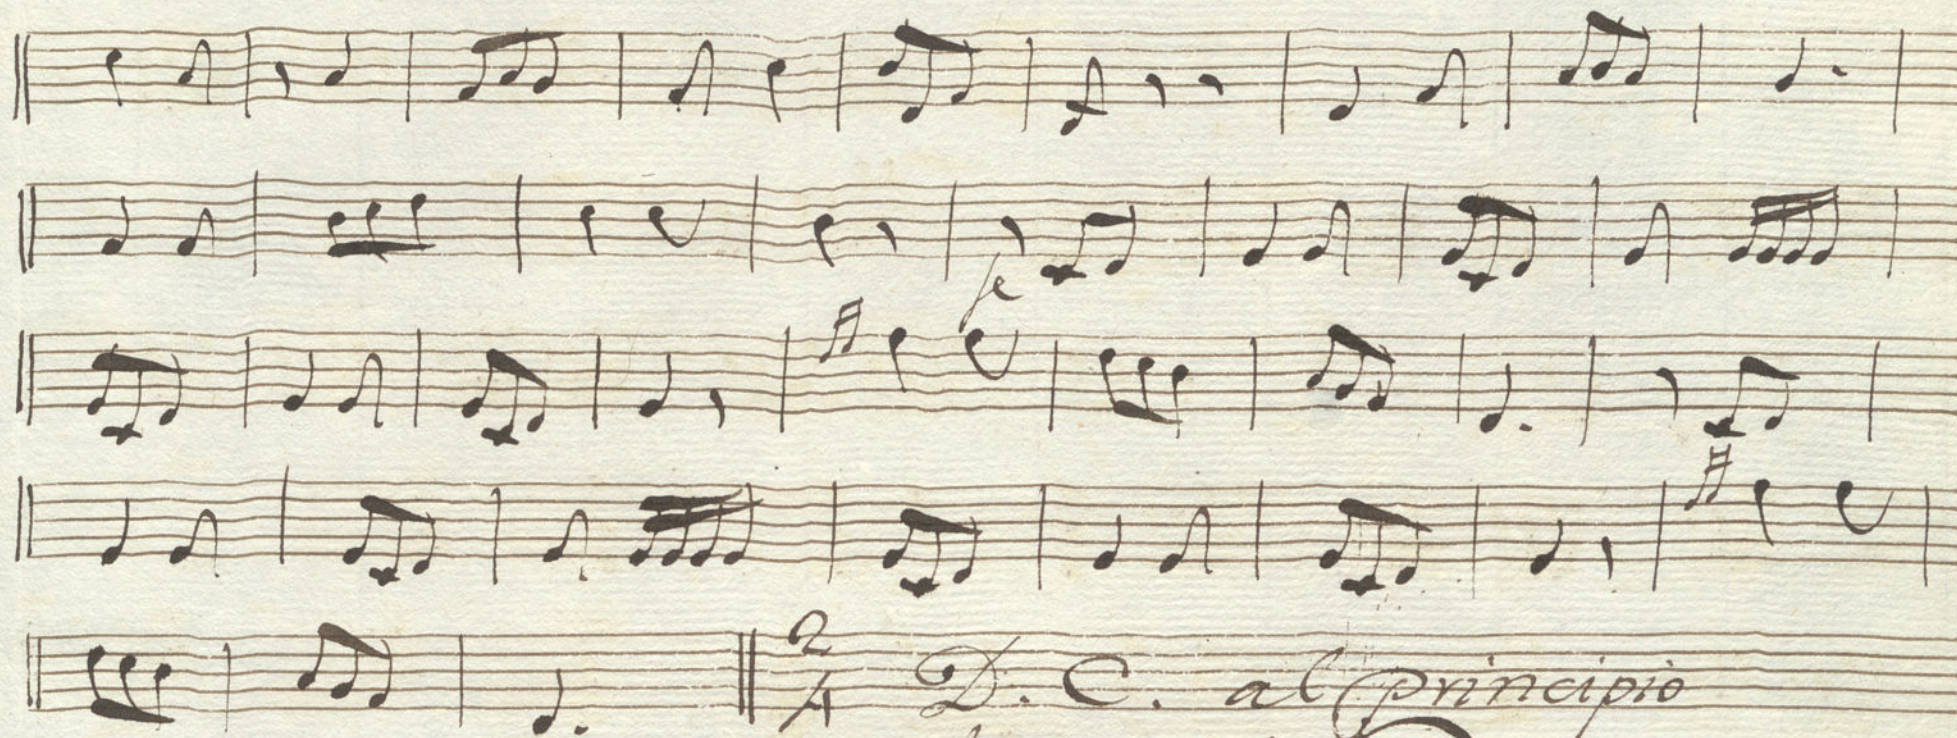 fe
2
4 D. C. al principio